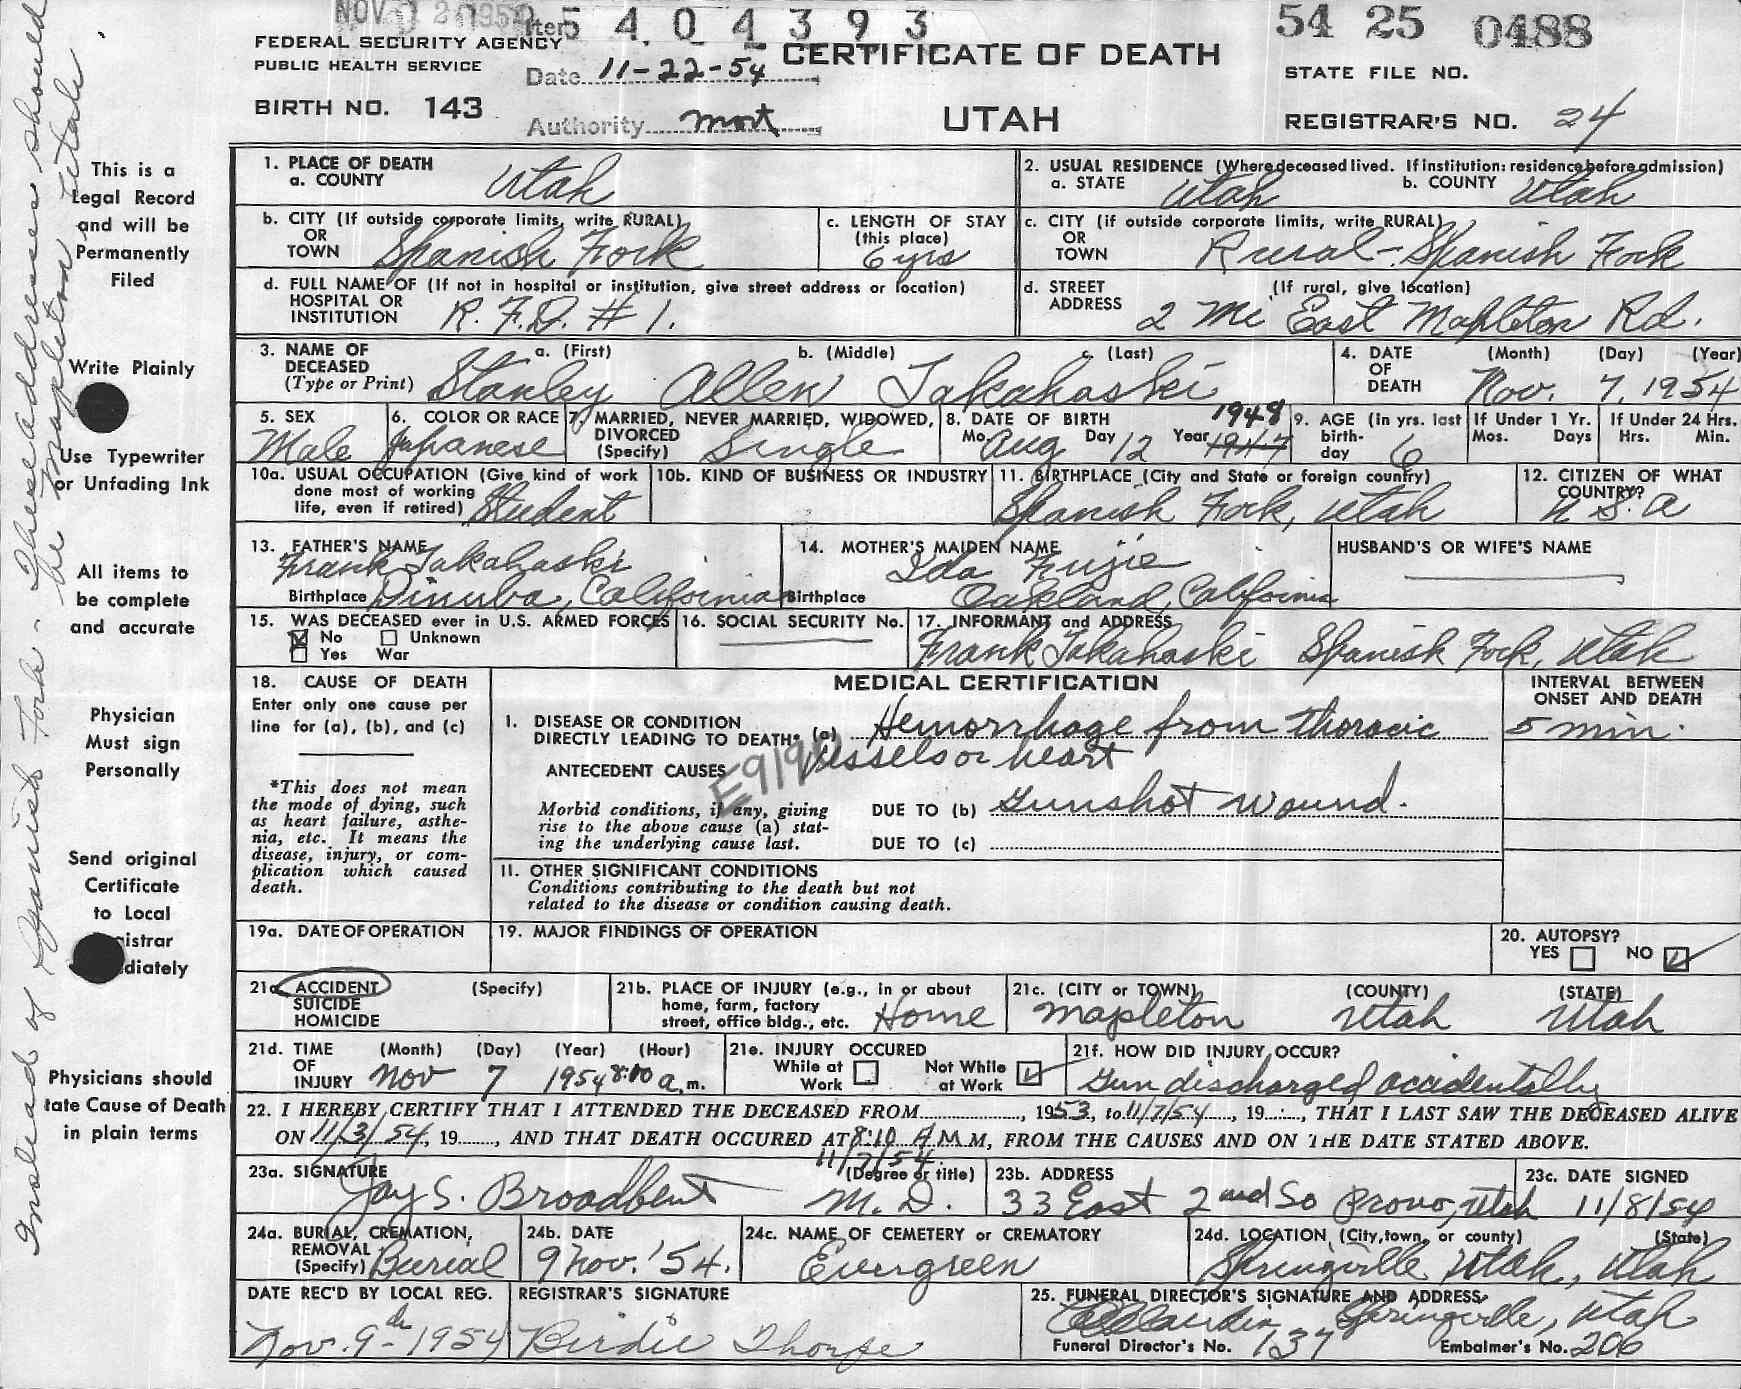 NOV 1 2 1954
Iter 5 4 0 4 3 9 3
54 25 0488
FEDERAL SECURITY AGENCY
PUBLIC HEALTH SERVICE
Date 11-22-54
CERTIFICATE OF DEATH
STATE FILE NO.
BIRTH NO. 143
Authority mort
UTAH
REGISTRAR'S NO. 24
This is a
Legal Record
and will be
Permanently
Filed
Write Plainly
Use Typewriter
or Unfading Ink
All items to
be complete
and accurate
Physician
Must sign
Personally
Send original
Certificate
to Local
gistrar
diately
Physicians should
tate Cause of Death
in plain terms
These addresses should
be Mapleton Utah
Instead of Spanish Fork -
1. PLACE OF DEATH
a. COUNTY Utah
2. USUAL RESIDENCE (Where deceased lived. If institution: residence before admission)
a. STATE Utah b. COUNTY Utah
b. CITY (If outside corporate limits, write RURAL)
OR
TOWN Spanish Fork
c. LENGTH OF STAY
(this place)
6 yrs
c. CITY (if outside corporate limits, write RURAL)
OR
TOWN Rural - Spanish Fork
d. FULL NAME OF (If not in hospital or institution, give street address or location)
HOSPITAL OR
INSTITUTION R.F.D. # 1.
d. STREET (If rural, give location)
ADDRESS 2 Mi East Mapleton Rd.
3. NAME OF a. (First) b. (Middle) c. (Last)
DECEASED
(Type or Print) Stanley Allen Takahaski
4. DATE (Month) (Day) (Year)
OF
DEATH Nov. 7, 1954
5. SEX
Male
6. COLOR OR RACE
Japanese
7. MARRIED, NEVER MARRIED, WIDOWED,
DIVORCED
(Specify) Single
8. DATE OF BIRTH 1948
Mo. Aug Day 12 Year 1947
9. AGE (in yrs. last
birth-
day 6
If Under 1 Yr.
Mos. Days
If Under 24 Hrs.
Hrs. Min.
10a. USUAL OCCUPATION (Give kind of work
done most of working
life, even if retired) Student
10b. KIND OF BUSINESS OR INDUSTRY
11. BIRTHPLACE (City and State or foreign country)
Spanish Fork, Utah
12. CITIZEN OF WHAT
COUNTRY?
U.S.A
13. FATHER'S NAME
Frank Takahaski
Birthplace Dinuba, California
14. MOTHER'S MAIDEN NAME
Ida Fujie
Birthplace Oakland, California
HUSBAND'S OR WIFE'S NAME
15. WAS DECEASED ever in U.S. ARMED FORCES
No Unknown
Yes War
16. SOCIAL SECURITY No.
17. INFORMANT and ADDRESS
Frank Takahaski Spanish Fork, Utah
18. CAUSE OF DEATH
Enter only one cause per
line for (a), (b), and (c)
*This does not mean
the mode of dying, such
as heart failure, asthe-
nia, etc. It means the
disease, injury, or com-
plication which caused
death.
MEDICAL CERTIFICATION
INTERVAL BETWEEN
ONSET AND DEATH
I. DISEASE OR CONDITION
DIRECTLY LEADING TO DEATH* (a) Hemorrhage from thoracic
5 min.
vessels or heart
ANTECEDENT CAUSES
E919
Morbid conditions, if any, giving
rise to the above cause (a) stat-
ing the underlying cause last.
DUE TO (b) Gunshot wound.
DUE TO (c)
11. OTHER SIGNIFICANT CONDITIONS
Conditions contributing to the death but not
related to the disease or condition causing death.
19a. DATE OF OPERATION
19. MAJOR FINDINGS OF OPERATION
20. AUTOPSY?
YES NO
21a. ACCIDENT (Specify)
SUICIDE
HOMICIDE
21b. PLACE OF INJURY (e.g., in or about
home, farm, factory
street, office bldg., etc. Home
21c. (CITY or TOWN) (COUNTY) (STATE)
Mapleton Utah Utah
21d. TIME (Month) (Day) (Year) (Hour)
OF
INJURY Nov 7 1954 8:00 a.m.
21e. INJURY OCCURED
While at Not While
Work at Work
21f. HOW DID INJURY OCCUR?
Gun discharged accidentally
22. I HEREBY CERTIFY THAT I ATTENDED THE DECEASED FROM , 1953, to 11/7/54, 19 , THAT I LAST SAW THE DECEASED ALIVE
ON 11/3/54, 19 , AND THAT DEATH OCCURED AT 8:10 A.M. M, FROM THE CAUSES AND ON THE DATE STATED ABOVE.
11/7/54
23a. SIGNATURE (Degree or title)
Jay S. Broadbent M.D.
23b. ADDRESS
33 East 2nd So Provo, Utah
23c. DATE SIGNED
11/8/54
24a. BURIAL, CREMATION,
REMOVAL
(Specify) Burial
24b. DATE
9 Nov. '54.
24c. NAME OF CEMETERY or CREMATORY
Evergreen
24d. LOCATION (City, town, or county) (State)
Springville Utah, Utah
DATE REC'D BY LOCAL REG.
Nov. 9th 1954
REGISTRAR'S SIGNATURE
Birdie Thorpe
25. FUNERAL DIRECTOR'S SIGNATURE AND ADDRESS
Springville, Utah
Funeral Director's No. 137 Embalmer's No. 206